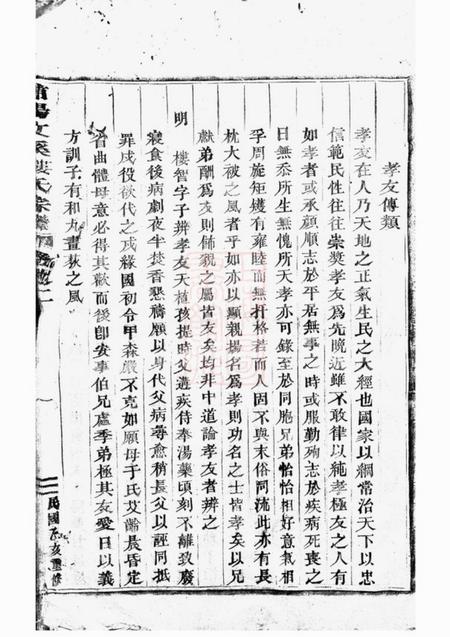 孝友傳類
孝友在人乃天地之正氣生民之大經也國家以綱常治天下以忠
信範民性往往崇奬孝友為先晚近雖不敢律以純孝極友之人有
如孝者或承顏順志於平居無事之時或服勤殉志於疾病死喪之
日無忝所生無愧所天孝亦可錄至於同胞兄弟怡怡相好意氣相
孚周旋矩矱有雍睦而無扞格若而人因不與末俗同流此亦有長
枕大被之風者乎如亦以顯親揚名爲孝則功名之士皆孝矣以兄
獻弟酬爲友則飾貌之屬皆友矣均非中道論孝友者辨之
明 樓智字子辨孝友天植孩提時父遘疾侍奉湯藥頃刻不離致廢
寢食後病劇夜半焚香懇禱願以身代父病尋愈稍長父以誣同抵
罪戍役欲代之戍緣國初令甲森嚴不克如願母于氏艾齡晨昏定
省曲體母意必得其歡而後卽安事伯兄處季弟極其友愛日以義
方訓子有和丸畫荻之風
民國乙亥重修